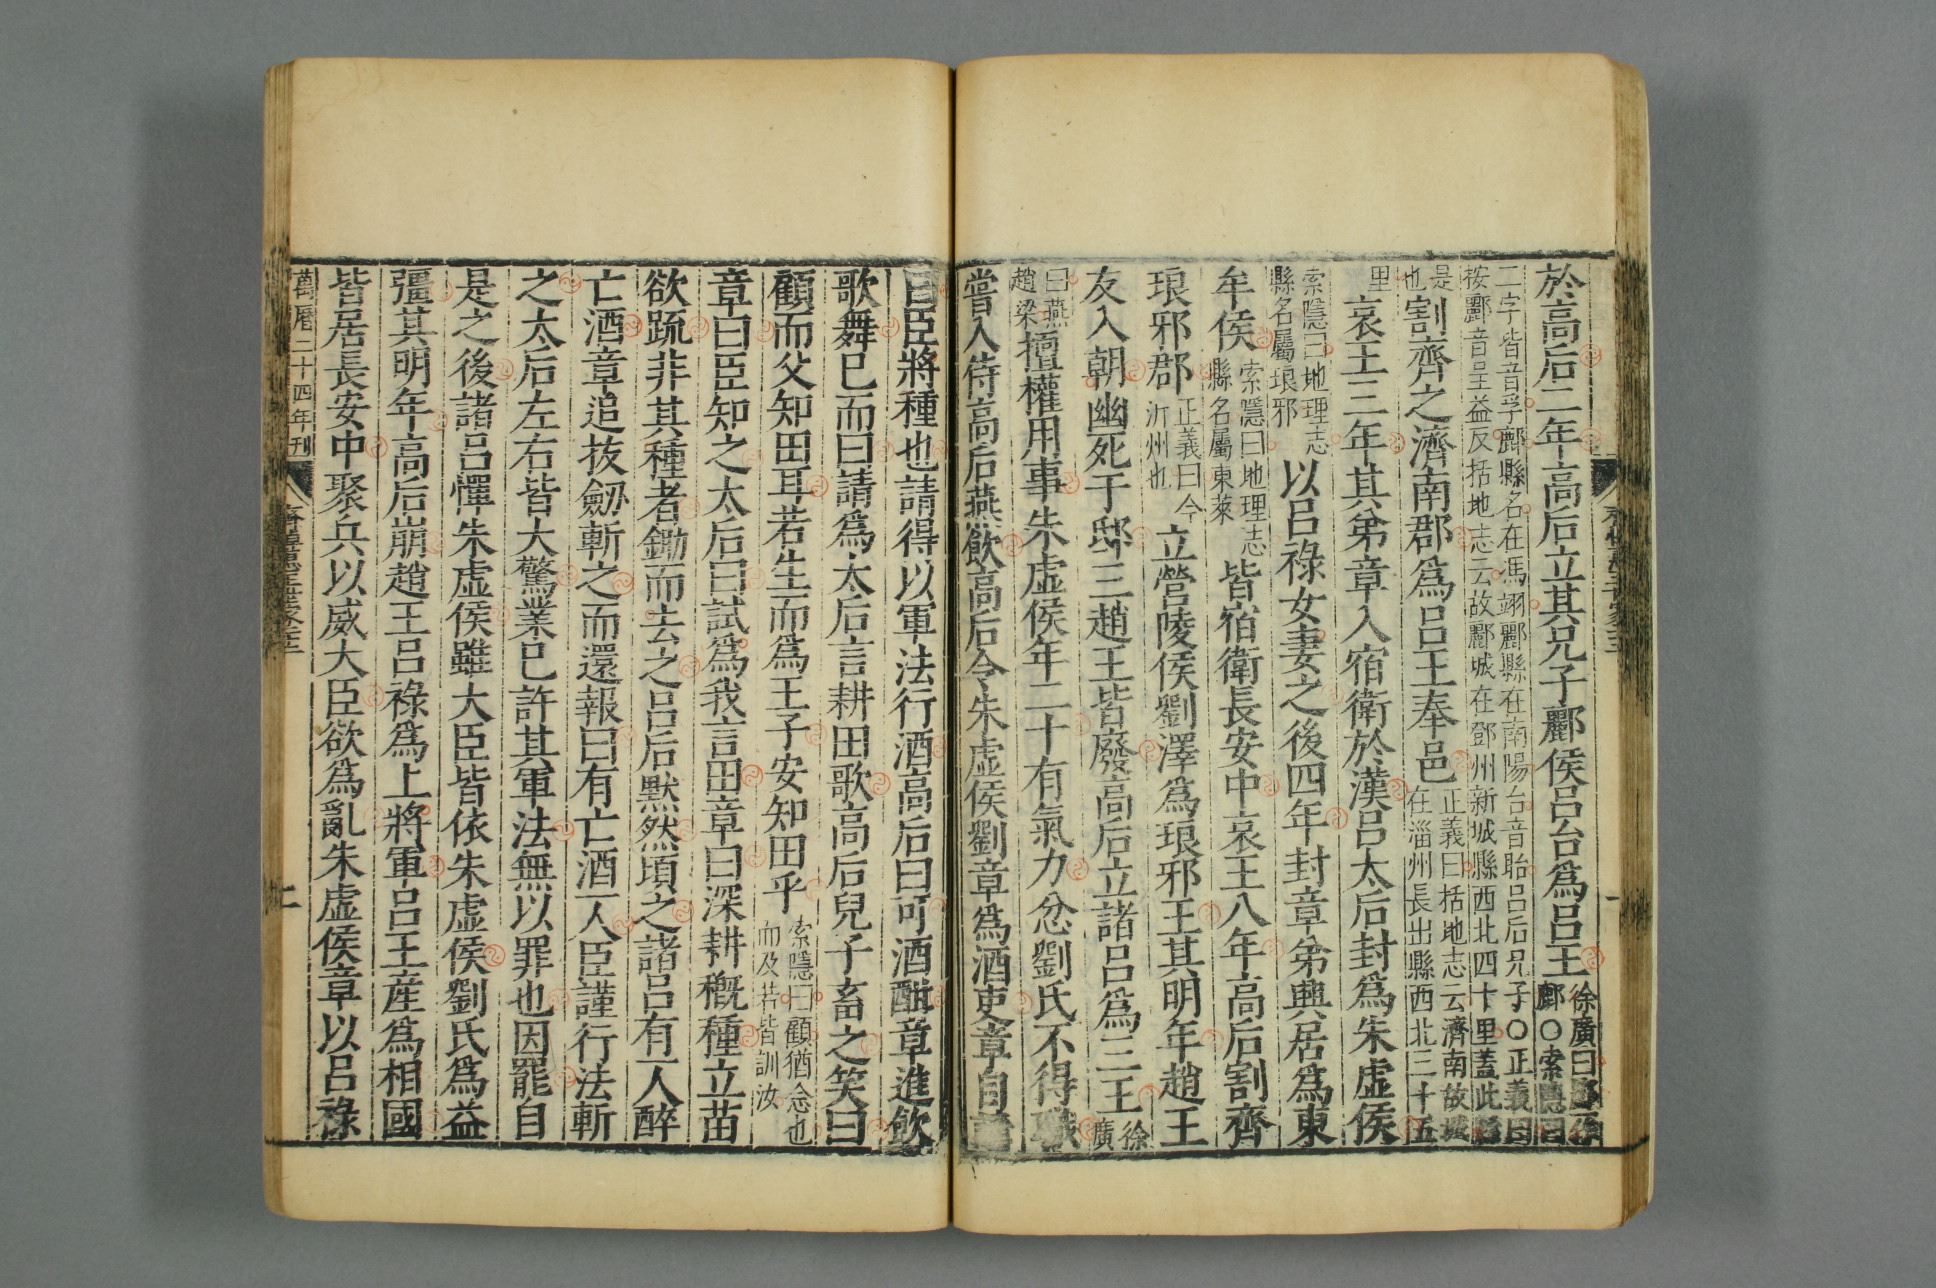 於高后二年高后立其兄子酈侯呂台爲呂王徐廣曰酈一作鄜○索隱曰
二字皆音孚鄜縣名在馮翊酈縣在南陽台音胎呂后兄子○正義曰
按酈音呈益反括地志云故酈城在鄧州新城縣西北四十里蓋此縣
是也割齊之濟南郡爲呂王奉邑正義曰括地志云濟南故城在淄州長出縣西北三十五
里哀王三年其弟章入宿衛於漢呂太后封爲朱虛侯
索隱曰地理志縣名屬琅邪以呂祿女妻之後四年封章弟興居爲東
牟侯索隱曰地理志縣名屬東萊皆宿衛長安中哀王八年高后割齊
琅邪郡正義曰今沂州也立營陵侯劉澤爲琅邪王其明年趙王
友入朝幽死于邸三趙王皆廢高后立諸呂爲三王徐廣
曰燕趙梁擅權用事朱虛侯年二十有氣力忿劉氏不得職
嘗入待高后燕飲高后令朱虛侯劉章爲酒吏章自請
曰臣將種也請得以軍法行酒高后曰可酒酣章進飲
歌舞已而曰請爲太后言耕田歌高后兒子畜之笑曰
顧而父知田耳若生而爲王子安知田乎索隱曰顧猶念也而及若皆訓汝
章曰臣知之太后曰試爲我言田章曰深耕穊種立苗
欲疏非其種者鋤而去之呂后默然頃之諸呂有一人醉
亡酒章追拔劒斬之而還報曰有亡酒一人臣謹行法斬
之太后左右皆大驚業已許其軍法無以罪也因罷自
是之後諸呂憚朱虛侯雖大臣皆依朱虛侯劉氏爲益
彊其明年高后崩趙王呂祿爲上將軍呂王產爲相國
皆居長安中聚兵以威大臣欲爲亂朱虛侯章以呂祿
萬曆二十四年刊